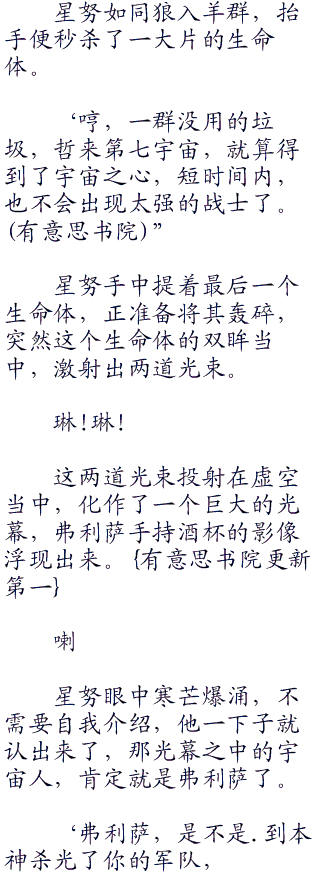 星努如同狼入羊群，抬
手便秒杀了一大片的生命
体。
‘哼，一群没用的垃
圾，哲来第七宇宙，就算得
到了宇宙之心，短时间内，
也不会出现太强的战士了。
(有意思书院)”
星努手中提着最后一个
生命体，正准备将其轰碎，
突然这个生命体的双眸当
中，激射出两道光束。
琳!琳!
这两道光束投射在虚空
当中，化作了一个巨大的光
幕，弗利萨手持酒杯的影像
浮现出来。{有意思书院更新
第一}
喇
星努眼中寒芒爆涌，不
需要自我介绍，他一下子就
认出来了，那光幕之中的宇
宙人，肯定就是弗利萨了。
‘弗利萨，是不是.到本
神杀光了你的军队，